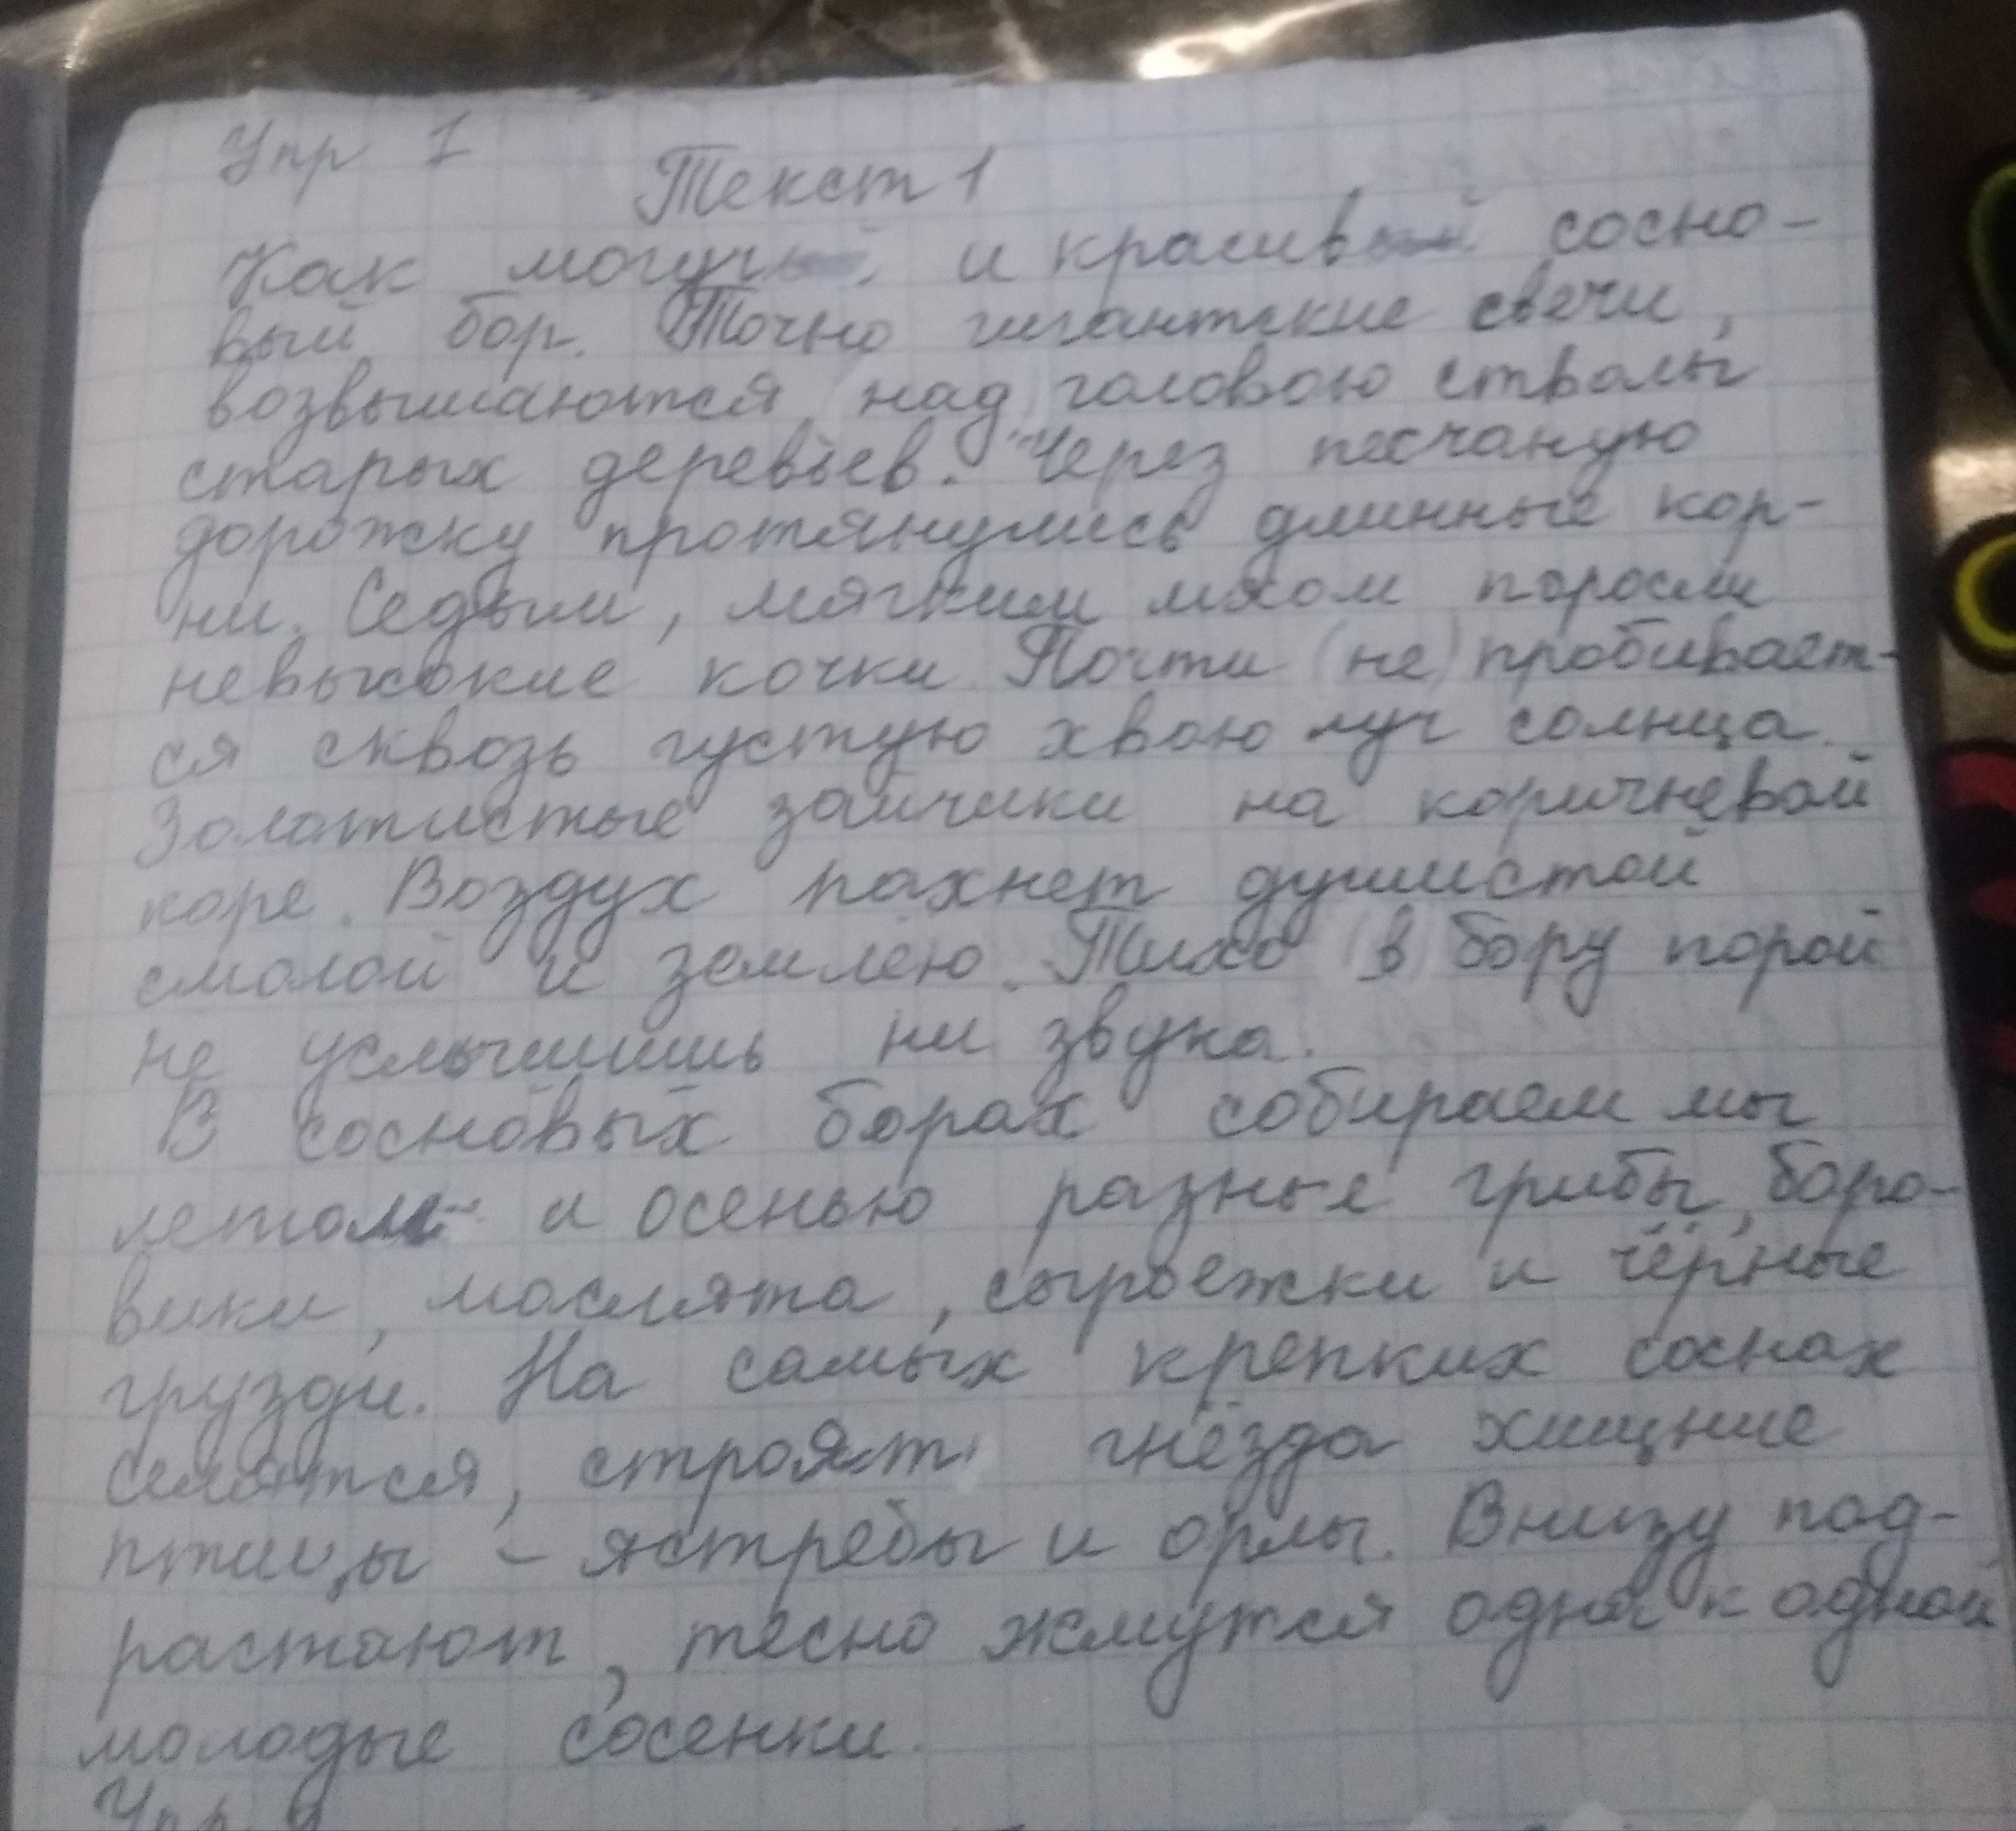 Упр 1
Текст 1
Как могуч и красив сосно-
вый бор. Точно гигантские свечи,
возвышаются (над) головою стволы
старых деревьев. Через песчаную
дорожку протянулись длинные кор-
ни. Седым, мягким мхом поросли
невысокие кочки. Почти (не) пробивает-
ся сквозь густую хвою луч солнца.
Золотистые зайчики на коричневой
коре. Воздух пахнет душистой
смолой и землёю. Тихо (в) бору порой
не услышишь ни звука.
В сосновых борах собираем мы
летом и осенью разные грибы, боро-
вики, маслята, сыроежки и чёрные
грузди. На самых крепких соснах
селятся, строят гнёзда хищние
птицы - ястребы и орлы. Внизу под-
растают, тесно жмутся одна к одной
молодые сосенки.
Упр